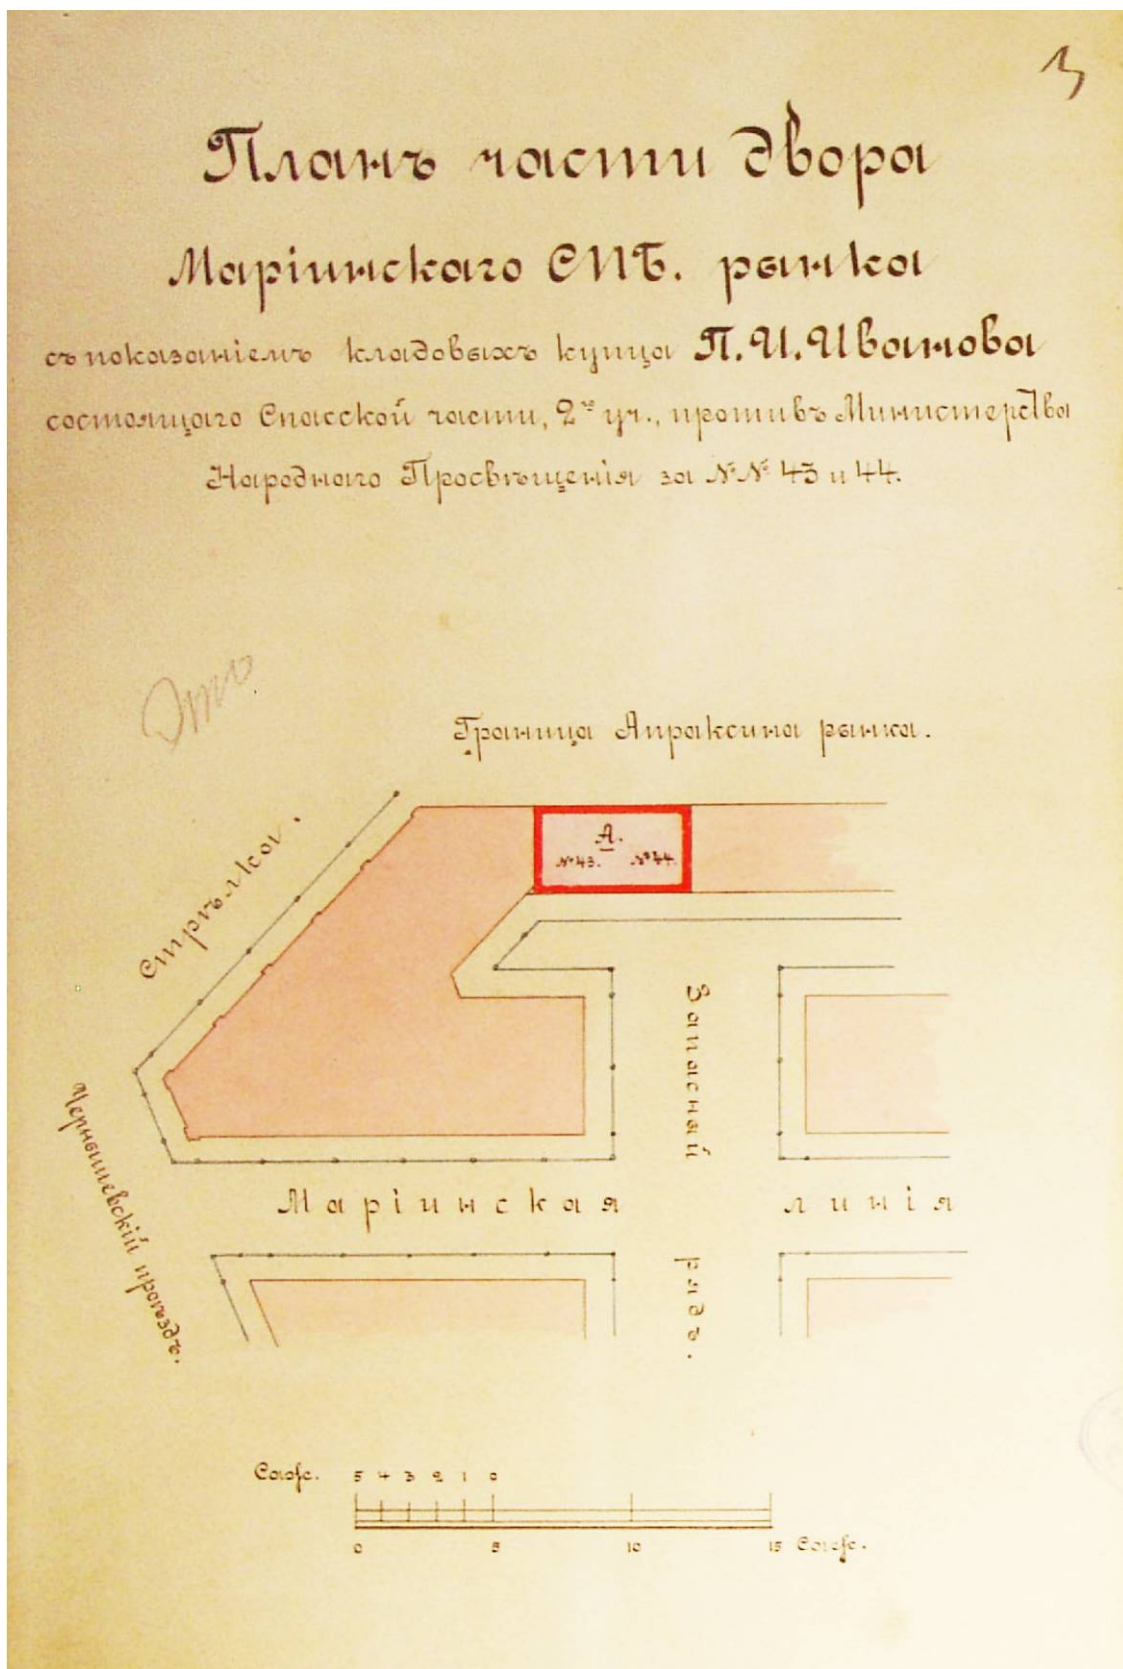 3
Планъ части двора
Маріинскаго СПБ. рынка
съ показаніемъ кладовыхъ купца П.И.Иванова
состоящаго Спасской части, 2го уч., противъ Министерства
Народнаго Просвѣщенія за №№ 43 и 44.
Это
Граница Апраксина рынка.
Стрѣлка.
А.
№43. №44.
Запасный
Чернышевскій проѣздъ.
Маріинская линія
рядъ.
Саж. 5 4 3 2 1 0
0 5 10 15 Саж.